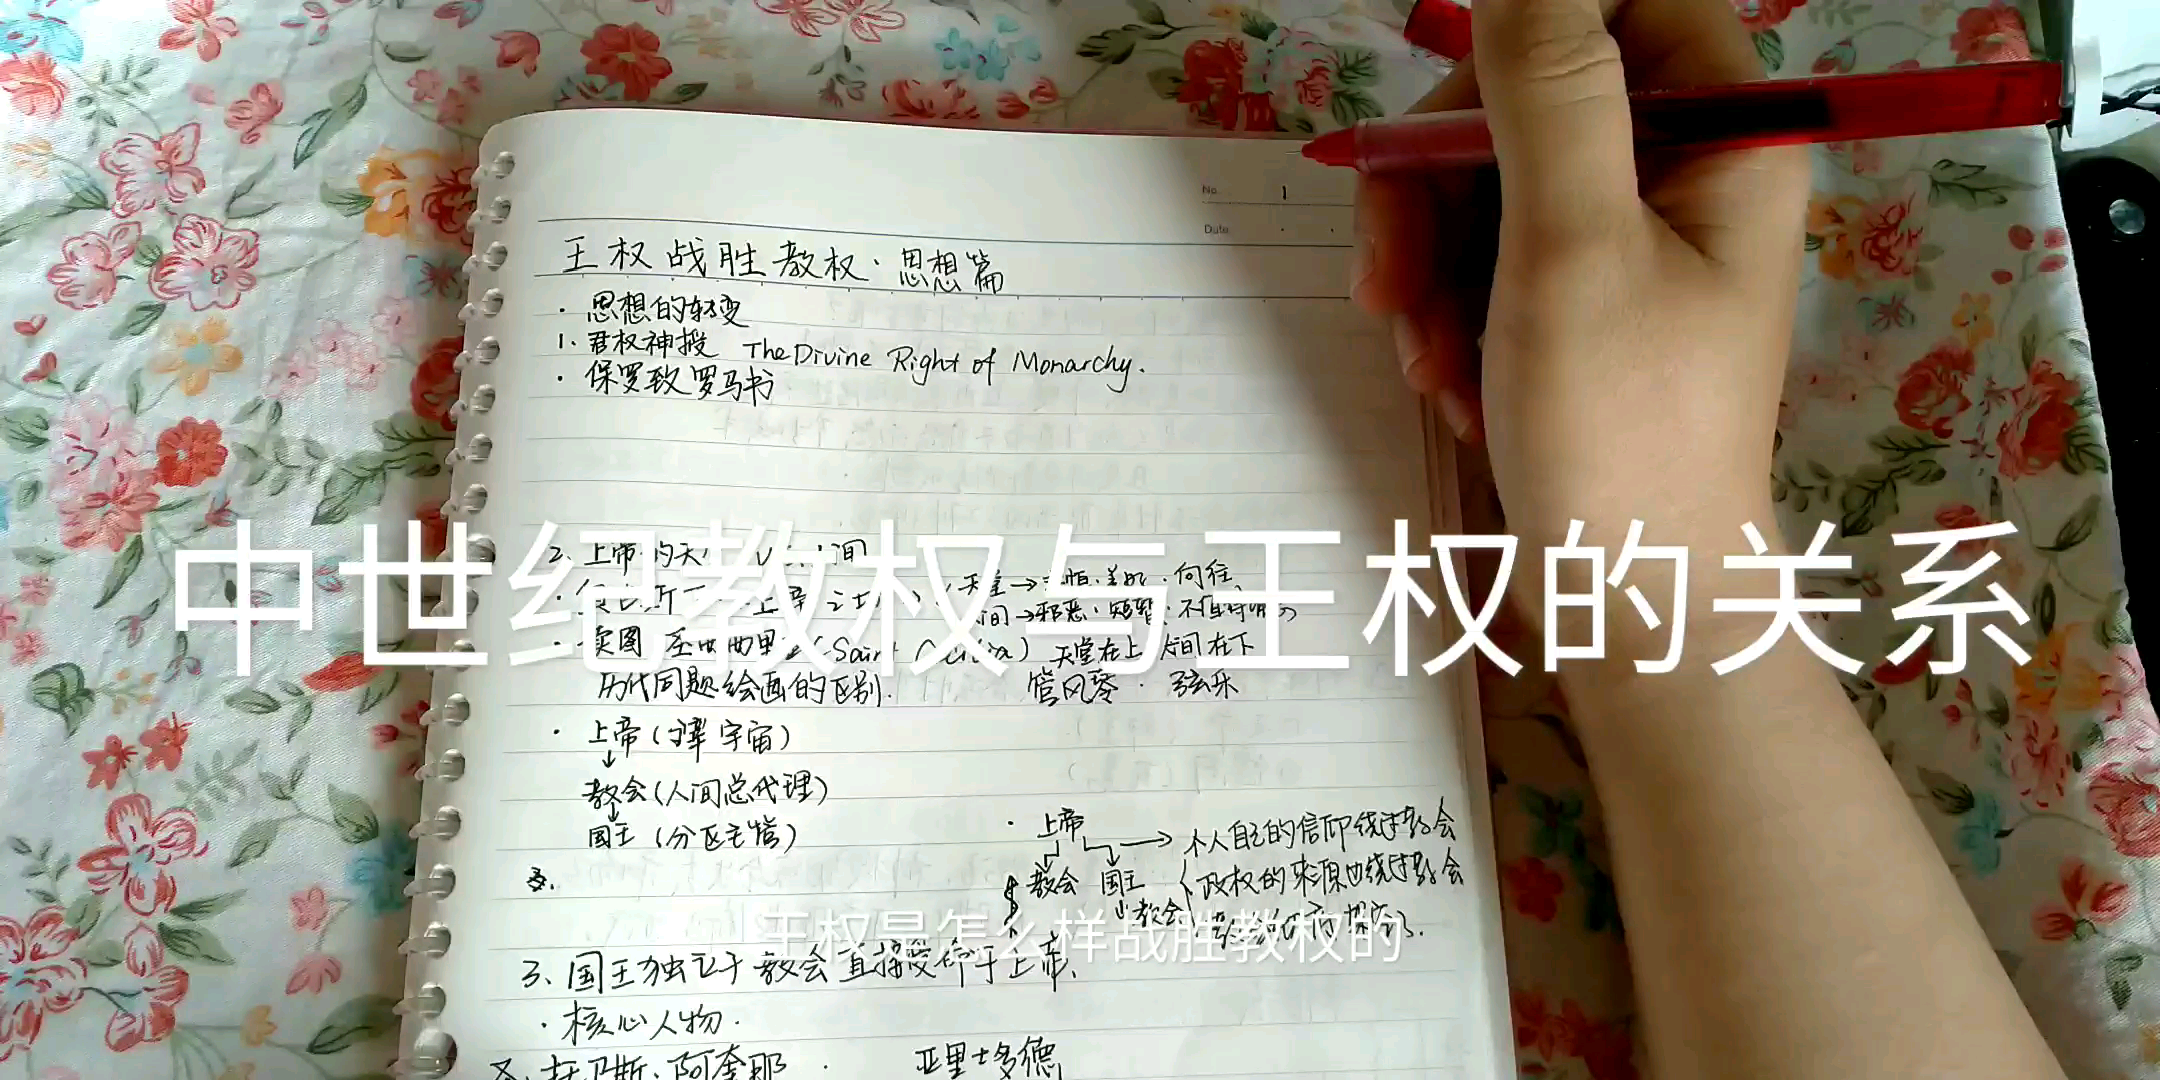 No. 1
Date
王权战胜教权·思想篇
· 思想的转变
1. 君权神授 The Divine Right of Monarchy.
· 保罗致罗马书
中世纪教权与王权的关系
2. 上帝的天 间
天堂→ 美好·向往
间→邪恶·短暂·不值得
· 读图 圣 西里 (Saint 天堂在上 人间在下
历代同题绘画的区别. 管风琴 · 弦乐
· 上帝 ( 宇宙)
↓
教会(人间总代理)
↓
国王 (分区主管)
· 上帝 → 个人自己的信仰绕过教会
教会 国王 政权的来源也绕过教会
教会
王权是怎么样战胜教权的
3. 国王独立于教会直接受命于上帝.
· 核心人物.
圣.托马斯.阿奎那 · 亚里士多德